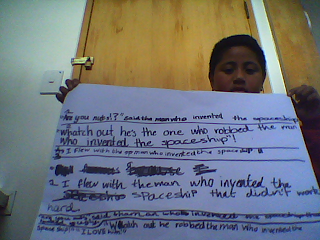 Are you mad!?" said the man who invented the spaceship
whatch out he's the one who robbed the man
who invented the spaceship"!
I flew with the man who invented the spaceship
I flew with the man who invented the
spaceship that didn't work
hard.
said the man who invented the spaceship
whatch out he robbed the man who invented the
spaceship I LOVE